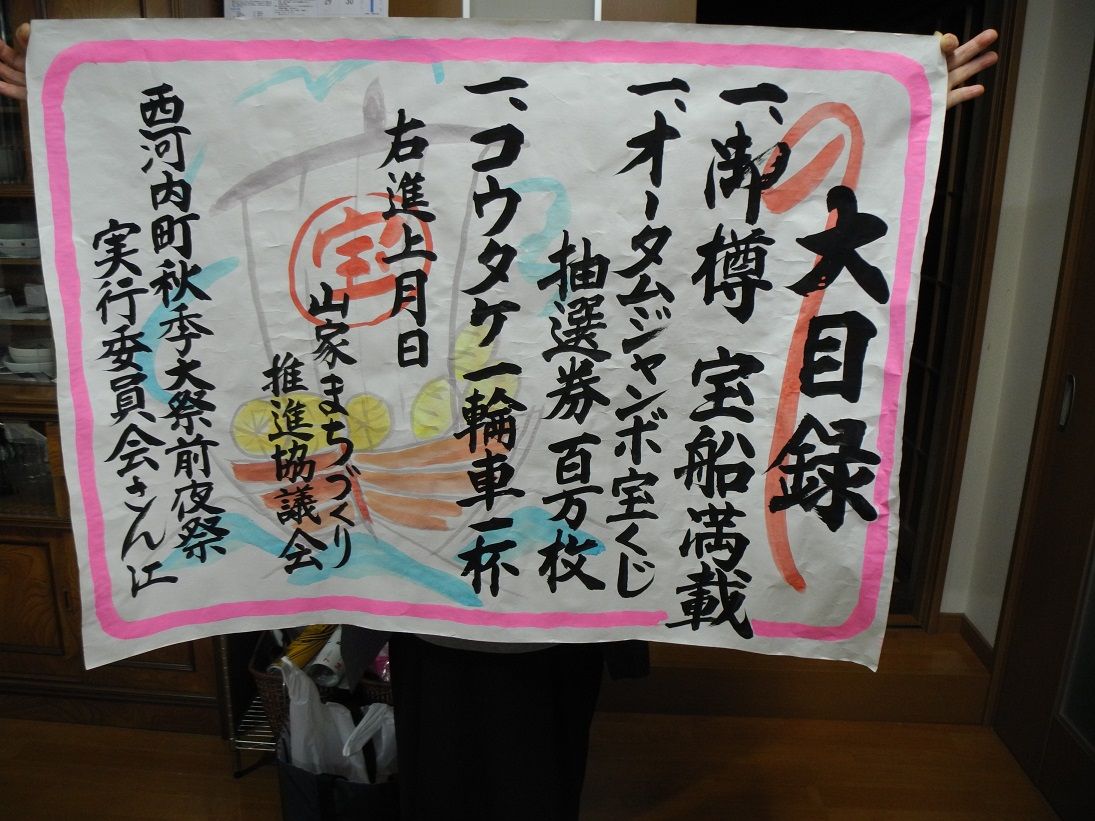 大目録
一、御樽 宝船満載
一、オータムジャンボ宝くじ
抽選券百万枚
一、コウタケ一輪車一杯
右進上月日
宝
山家まちづくり
推進協議会
西河内町秋季大祭前夜祭
実行委員会さん江
29 30